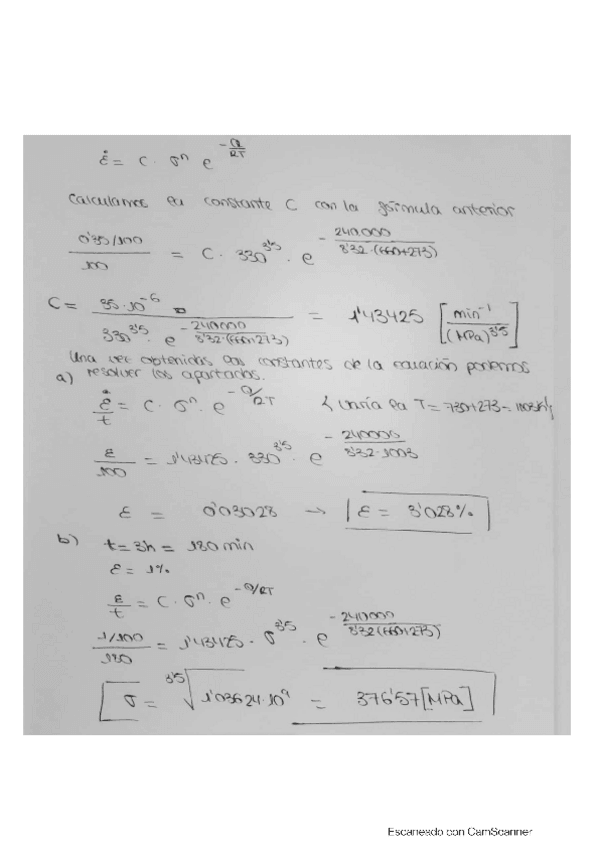 ε̇ = C · σⁿ e^(-Q/RT)
Calculamos la constante C con la fórmula anterior
(0'35/100)/100 = C · 330^3'5 · e^(-240.000/8'32·(660+273))
C = 35·10^-6 / (330^3'5 · e^(-240000/8'32·(660+273))) = 1'43425 [min^-1/(MPa)^3'5]
Una vez obtenidas las constantes de la ecuación podemos
resolver los apartados.
a) ε̇/t = C · σⁿ · e^(-Q/RT) varía la T = 730+273 = 1003K
ε/100 = 1'43425 · 330^3'5 · e^(-240000/8'32·1003)
ε = 0'03028 → ε = 3'028%
b) t = 3h = 180 min
ε = 1%
ε/t = C · σⁿ · e^(-Q/RT)
(1/100)/180 = 1'43425 · σ^3'5 · e^(-240000/8'32(660+273))
σ = ^3'5√(1'03624·10^9) = 376'57 [MPa]
Escaneado con CamScanner